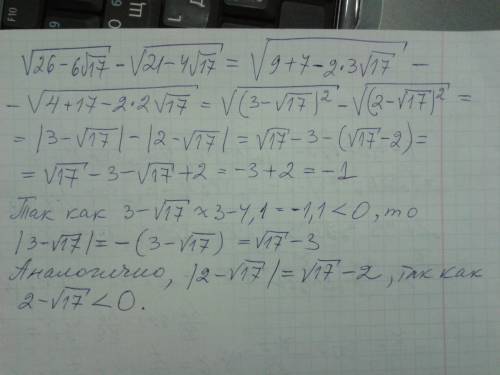 √(26-6√17) - √(21-4√17) = √(9+7-2·3√17) -
- √(4+17-2·2√17) = √((3-√17)²) - √((2-√17)²) =
= |3-√17| - |2-√17| = √17-3-(√17-2)=
= √17-3-√17+2 = -3+2 = -1
Так как 3-√17 ≈ 3-4,1 = -1,1 < 0, то
|3-√17| = -(3-√17) = √17-3
Аналогично, |2-√17| = √17-2, так как
2-√17 < 0.